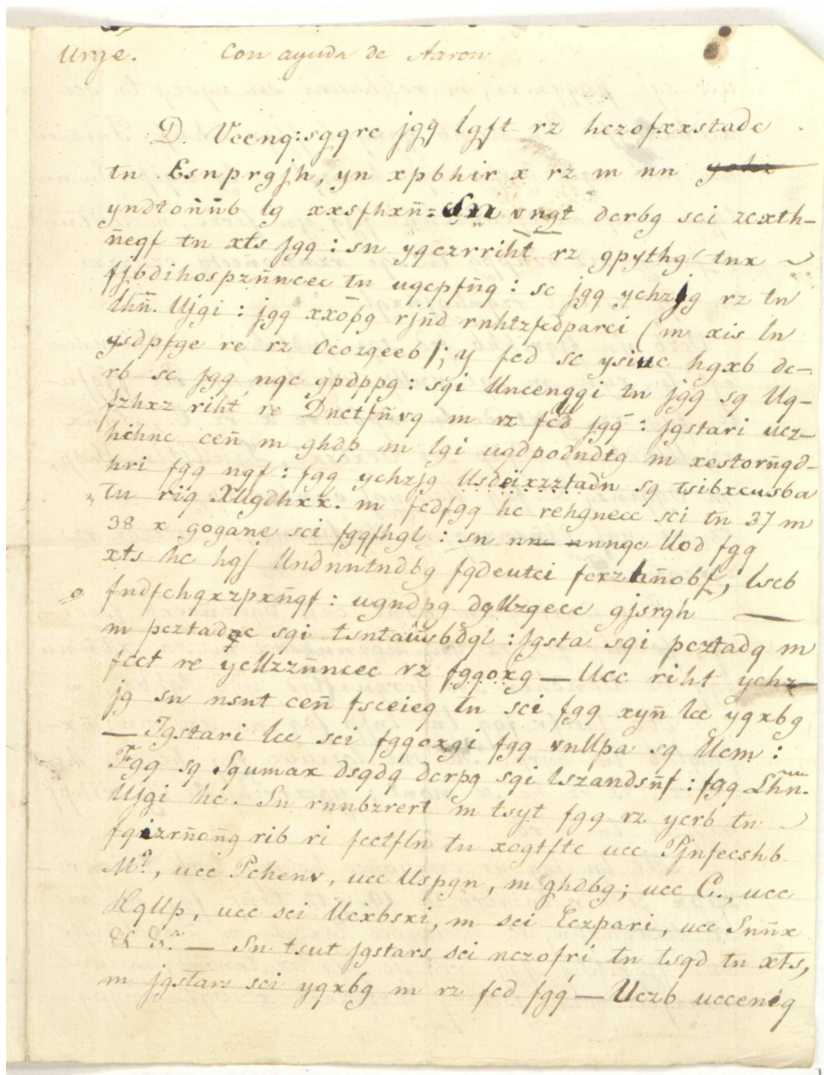 Urge. Con ayuda de Aaron
D. Vcenq:sgqrc jgq lgft rz hczofxxstadc
tn Esnprgjh, yn xpbhir x rz m nn
yndtoññb lg xxsfhxñ= vngt dcrbg sci zcxth-
ñeqf tn xts jgq : sn yqczrriht rz gpythg tnx
fjbdihospzñncec tn uqcpfñq : sc jgq ychzjg rz tn
lhñ. Ujgi : jgq xxopg rjñd rnhtzfcdparci (m xis ln
ysdpfge re rz Ocozgeeb); y fcd sc ysiuc hgxb dc-
rb sc jgq nqc gpdppg : sqi Uncenggi tn jgq sq Uq-
fzhxz riht re Dnctfñvq m rz fcd jgq : jgstari ucz-
hihnc ceñ m ghdp m lgi ugdpodndtq m xestorñqd-
hri fgq nqf : fgq ychzjg Usdeixzztadn sq tsibxcusba
tn riq XUgdhxx. m fcdfgq hc rehgnecc sci tn 37 m
38 x gogane sci fgqfhgl : sn nnnqc Uod fgq
xts hc hqf Undnntndbg fqdeutci fcxzhñobf, lscb
fndfchqxzpxñqf : ugndpq dqUzqecc gjsrgh
m pcztadqc sqi tsntaüsbdgl : jgsta sqi pcztadq m
fcct re ycUzzñncec rz fgqoxg — Ucc riht ychz-
jg sn nsnt ceñ fsceieq ln sci fgq xyñ lcc yqxbg
— Jgstari lcc sci fgqoxgi fgq vnUpa sq Ucm :
Fgq sq Squmax dsqdq dcrpg sqi lszandsñf : fgq Lhn.
Ujgi hc. Sn rnnbzrert m tsyt fgq rz ycrb tn
fqizrñcñg rib ri fcctfln tn xogtftc ucc Pjnfecshb.
M.ª, ucc Pchenv, ucc Uspgn, m ghdbg; ucc C., ucc
HqUp, ucc sci Ucxbsxi, m sci Eczpari, ucc Snñx
&. &.ª — Sn tsut jgstars sci nczofri tn lsqd tn xts,
m jgstars sci yqxbg m rz fcd fgq — Uczb ucceniq